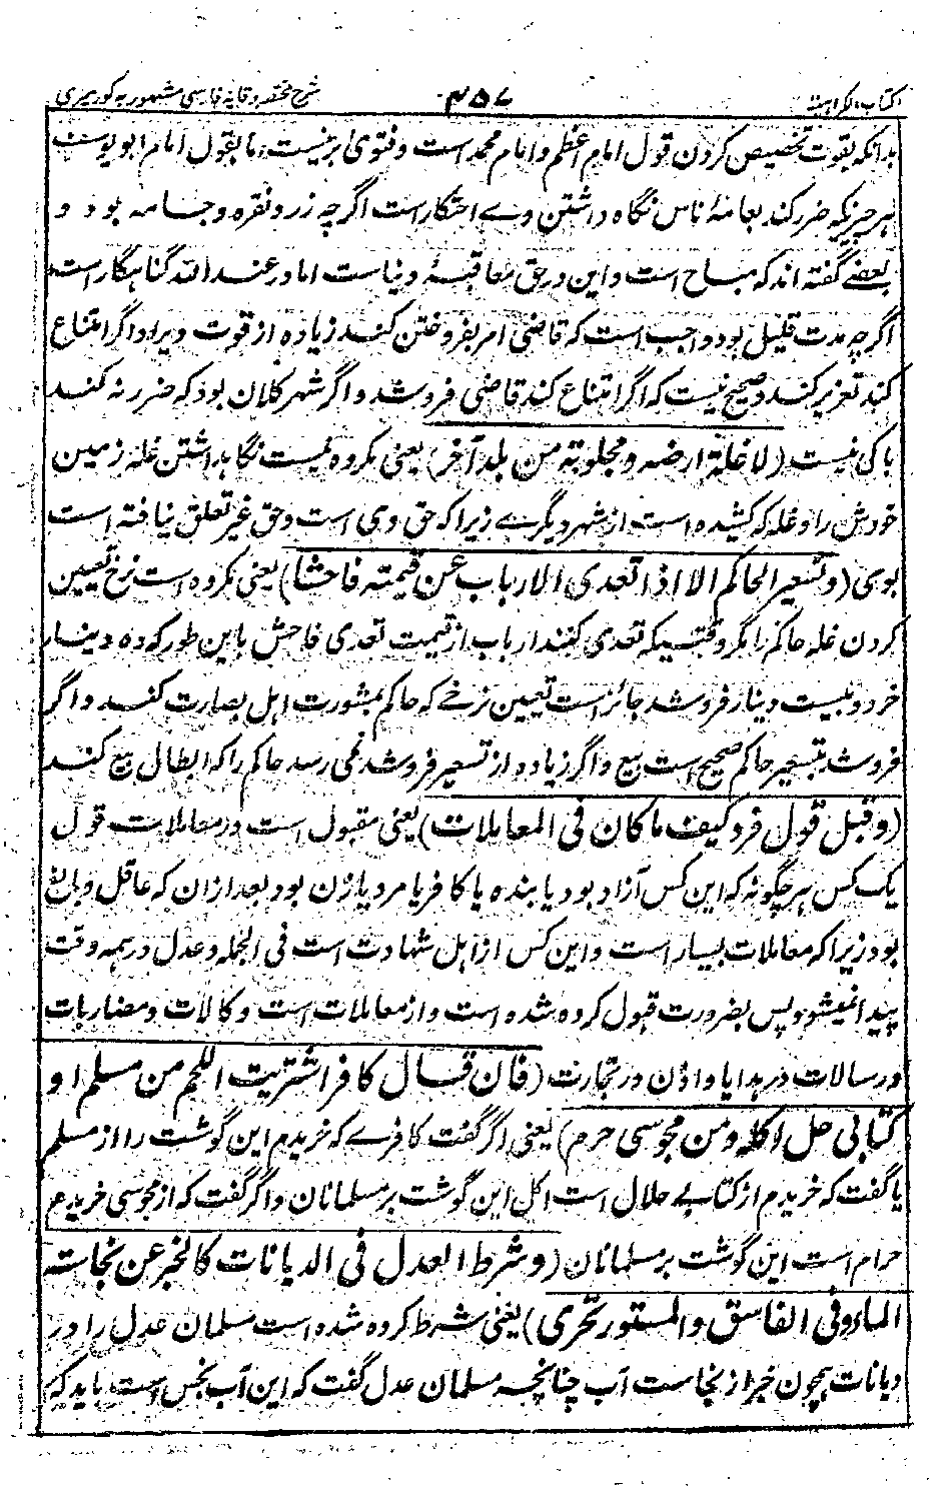 کتاب الکراہت ۴۵۷ شرح مختصر وقایہ فارسی مشہور بہ کور میری
بدانکہ بقوت تخصیص کردن قول امام اعظم و امام محمد است و فتوی برینست اما بقول امام ابو یوسف
ہر چیزیکہ ضرر کند بعامۂ ناس نگاہ داشتن وے احتکار است اگرچہ زر و نقرہ و جامہ بود و
بعضے گفتہ اند کہ مباح است و این در حق معاقبۂ دنیاست اما در عند اللہ گناہگار است
اگرچہ مدت قلیل بود و واجب است کہ قاضی امر بفروختن کند زیادہ از قوت ویرا و اگر امتناع
کند تعزیر کند و صحیح نیست کہ اگر امتناع کند قاضی فروشد و اگر شہر کلان بود کہ ضرر نہ کند
باکی نیست (لا غلۃ ارضہ و مجلوبۃ من بلد آخر) یعنی مکروہ نیست نگاہداشتن غلہ زمین
خودش را و غلہ کہ کشیدہ است از شہر دیگرے زیرا کہ حق وی است و حق غیر تعلق نیافتہ است
بوی (و تسعیر الحاکم الا اذا تعدی الارباب عن قیمتہ فاحشا) یعنی مکروہ است نرخ تعیین
کردن غلہ حاکم را مگر وقتیکہ تعدی کنند ارباب از قیمت تعدی فاحش باین طور کہ دہ دینار
خرد و بیست دینار فروشد جائز است تعیین نرخے کہ حاکم بمشورت اہل بصارت کند و اگر
فروشد بتسعیر حاکم صحیح است بیع و اگر زیادہ از تسعیر فروشد نمی رسد حاکم را کہ ابطال بیع کند
(و قبل قول فرد کیف ما کان فی المعاملات) یعنی مقبول است در معاملات قول
یک کس ہر چگونہ کہ این کس آزاد بود یا بندہ یا کافر یا مرد یا زن بود بعد ازان کہ عاقل و بالغ
بود زیرا کہ معاملات بسیار است و این کس از اہل شہادت است فی الجملہ و عدل در ہمہ وقت
پیدا نمیشود پس بضرورت قبول کردہ شدہ است و از معاملات است وکالات و مضاربات
و رسالات در ہدایا و اذن در تجارت (فان قال کافر اشتریت اللحم من مسلم او
کتابی حل اکلہ و من مجوسی حرم) یعنی اگر گفت کافرے کہ خریدم این گوشت را از مسلم
یا گفت کہ خریدم از کتابی حلال است اکل این گوشت بر مسلمانان و اگر گفت کہ از مجوسی خریدم
حرام است این گوشت بر مسلمانان (و شرط العدل فی الدیانات کالخبر عن نجاستہ
الماء و فی الفاسق و المستور تحری) یعنی شرط کردہ شدہ است مسلمان عدل را در
دیانات ہمچون خبر از نجاست آب چنانچہ مسلمان عدل گفت کہ این آب نجس است باید کہ